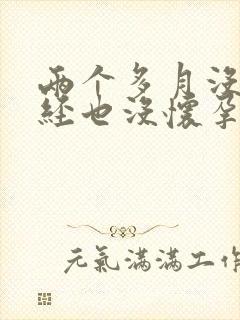 两个多月没
经也没懷孕
元氣滿滿工作